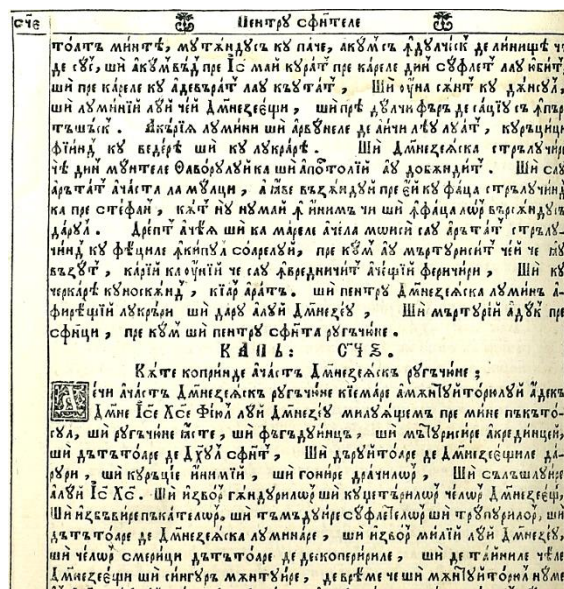 СЧ҃Є Пентрꙋ сфи́теле
толтъ ми́нтѣ, мꙋтѫ́ндꙋсъ кꙋ па́че, акꙋ́мсъ ꙟдꙋлчѣ́ск де ли́нище
де сꙋ́с, шѝ акꙋ́мвѣд пре І҆с май кꙋра́т пре ка́реле дин сꙋ́флет лаꙋ юби́т
шѝ пре ка́реле кꙋ а҆девъра́т лаꙋ къꙋта́т, Шѝ оу҆́на сѫ́нт кꙋ дѫ́нсꙋл,
шѝ лꙋми́нїй лꙋй чей Дм҃незеє́щи, шѝ прѣ дꙋ́лчи фъ́ръ де са́цїꙋ
тъшѣ́ск. А҆къ́рїѧ лꙋми́ни шѝ а҆рвꙋ́неле де а҆и́чи лѣ́ꙋ лꙋа́т, кꙋръци́ци
фїи́нд кꙋ ведѣ́рѣ шѝ кꙋ лꙋкра́рѣ. Шѝ Дм҃незеꙗ́ска стрълꙋчи́ре
чѣ дин мꙋ́нтеле Ѳаво́рꙋлꙋй ка шѝ а҆по́столїй а҆ꙋ добѫнди́т. Шѝ
а҆ръта́т а҆ча́ста ла мꙋ́лци, възѫ́ндꙋй пре є҆́й кꙋ фа́ца стрълꙋчи́нд
ка пре сте́фан, кѫт нꙋ нꙋма́й ꙟ и҆́нимъ чи шѝ ꙟ фа́ца ло́р въ́рсѫндꙋсъ
да́рꙋл. Дре́пт а҆чѣ́ꙗ шѝ ка ма́реле а҆че́ла мѡѵсі́й саꙋ а҆ръта́т стрълꙋ-
чи́нд кꙋ фѣ́циле ꙟ ки́пꙋл со́арелꙋй, пре кꙋм а҆ꙋ мъртꙋриси́т чей че лꙋ
възꙋ́т, ка́рїй ка оу҆́нїй че саꙋ ꙟвредничи́т а҆че́щїй феричи́ри, Шѝ кꙋ
черка́рѣ кꙋноскѫ́нд, кїа́р а҆ра́тъ. шѝ пентрꙋ Дм҃незеꙗ́ска лꙋми́нъ ꙟ-
фи́рещїй лꙋ́крꙋри шѝ да́рꙋ а҆лꙋй Дм҃незе́ꙋ, Шѝ мъртꙋрі́й а҆дꙋ́к пре
сфи́нци, пре кꙋм шѝ пентрꙋ сфи́нта рꙋгъчю́не.
КАПЬ: СЧ҃Ѕ.
Кѫ́те копри́нде а҆ча́стъ Дм҃незеꙗ́скъ рꙋгъчю́не;
Дечи а҆ча́стъ Дм҃незеꙗ́скъ рꙋгъчю́не кїема́ре а҆ мѫнтꙋито́рюлꙋй а҆де́къ
До́амне І҆се Хс҃е Фїюл лꙋй Дм҃незе́ꙋ милꙋꙗ́ще пре ми́не пъкъто́-
сꙋл, шѝ рꙋгъчю́не ꙗ҆́сте, шѝ фъгъдꙋи́нцъ, шѝ мъртꙋриси́ре а҆ креди́нцей,
шѝ дътъто́аре де Дх҃ꙋл сфи́нт, Шѝ дърꙋито́аре де Дм҃незеє́щиле да́-
рꙋри, шѝ кꙋръці́е и҆́нимїй, шѝ гони́ре дра́чилор, Шѝ сълъшлꙋи́ре
а҆лꙋй І҆с Хс. Шѝ и҆зво́р гѫ́ндꙋрилор шѝ кꙋцетъ́рилор че́лор Дм҃незеє́щи,
Шѝ и҆збъви́ре пъка́телор, шѝ тъмъдꙋи́ре сꙋ́флетелор шѝ трꙋ́пꙋрилор, шѝ
дътъто́аре де Дм҃незеꙗ́ска лꙋмина́ре, шѝ и҆зво́р ми́лїй лꙋй Дм҃незе́ꙋ,
шѝ че́лор смери́ци дътъто́аре де дескопери́риле, шѝ де та́йниле че́ле
Дм҃незеє́щи шѝ си́нгꙋръ мѫнтꙋи́ре, де врѣ́ме че шѝ мѫнтꙋито́рюл нꙋ́ме